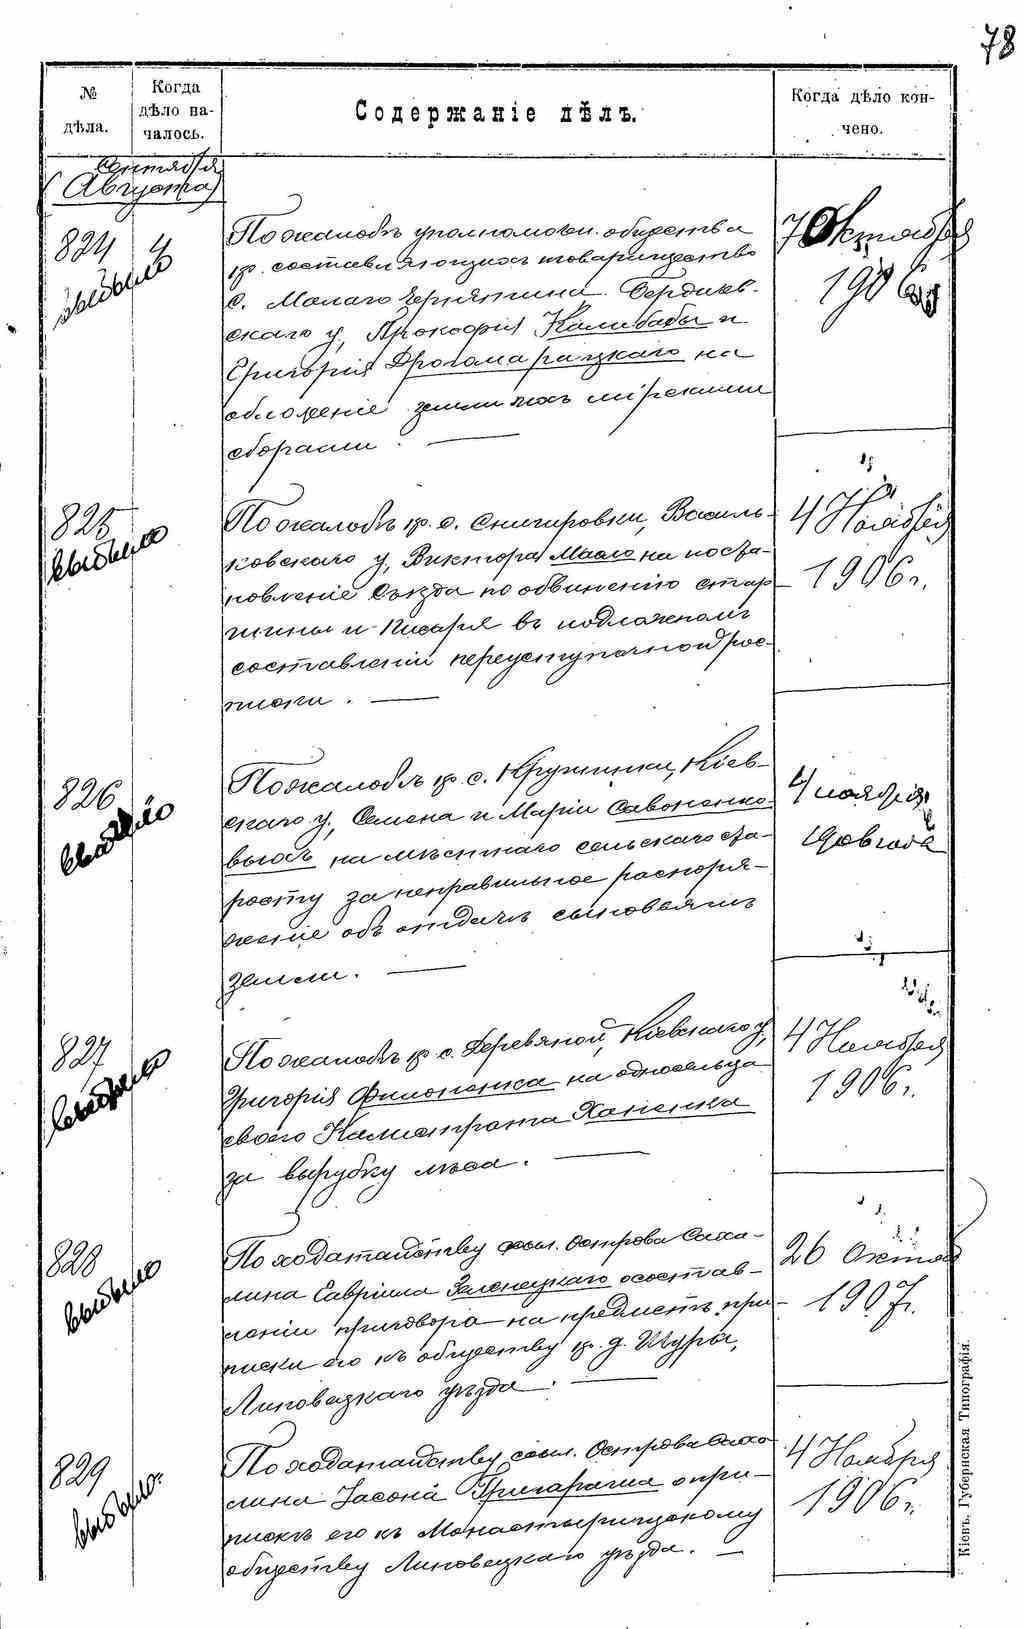 78
№ дѣла.
Когда дѣло началось.
Содержаніе дѣлъ.
Когда дѣло кончено.
Сентября
(Августа)
824 4
выбыло
По жалобѣ уполномочен. общества
кр. составляющихъ товарищество
с. Малаго Чернятина Бердичев-
скаго у, Прокофія Калибабы и
Григорія Дрогомарецкаго на
обложеніе земли ихъ мірскими
сборами.
7 Октября
1906
825
выбыло
По жалобѣ кр. с. Снигировки, Василь-
ковскаго у, Виктора на поста-
новленіе Съѣзда по обвиненію стар
шины и писаря въ подложномъ
составленіи переуступочной рос-
писки.
4 Ноября
1906 г.
826
выбыло
По жалобѣ кр. с. Кружинки, Кіев-
скаго у, Семена и Маріи Савоненко-
выхъ на мѣстнаго сельскаго ста-
росту за неправильное распоря-
женіе объ отдачѣ сыновьямъ
земли.
4 ноября
1906 года
827
выбыло
По жалобѣ кр с. Деревяной, Кіевскаго у,
Григорія Филоненка на односельца
своего Калистрата Ханенка
за вырубку лѣса.
4 Ноября
1906 г.
828
выбыло
По ходатайству ссыл. Острова Саха-
лина Гавріила Зеленецкаго о состав-
леніи приговора на предметъ при-
писки его къ обществу кр. д. Шуры,
Липовецкаго уѣзда.
26 Октяб
1907 г.
829
выбыло.
По ходатайству ссыл. Острова Саха
лина Іасона Григораша о при-
пискѣ его къ Монастырищскому
обществу Липовецкаго уѣзда.
4 Ноября
1906 г.
Кіевъ. Губернская Типографія.